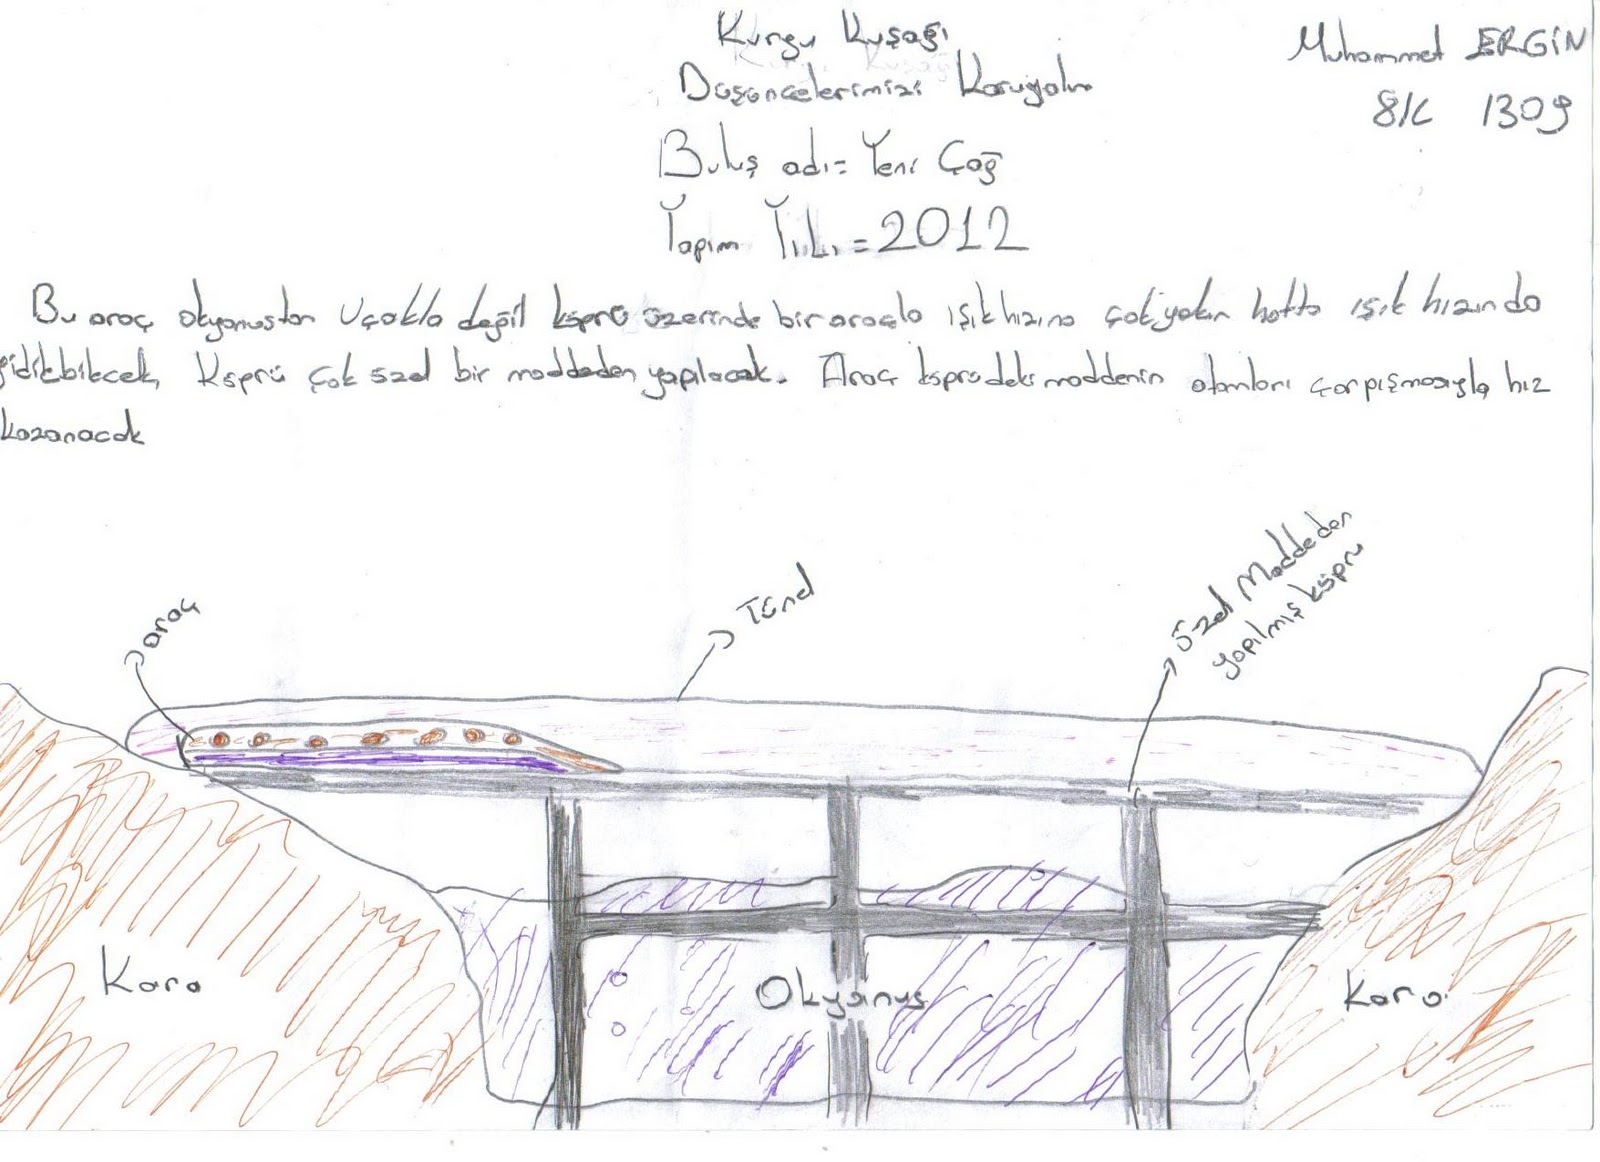 Kurgu Kuşağı
Düşüncelerimizi Koruyalım
Muhammet ERGİN
8/C 1309
Buluş adı= Yeni Çağ
Yapım Yılı=2012
Bu araç okyonustan uçakla değil köprü üzerinde bir araçla ışık hızına çok yakın hatta ışık hızında
gidilebilecek, Köprü çok özel bir maddeden yapılacak. Araç köprüdeki maddenin atomları çarpışmasıyla hız
kazanacak
araç
Tünel
özel Maddeden
yapılmış köprü
Kara
Okyanus
Kara